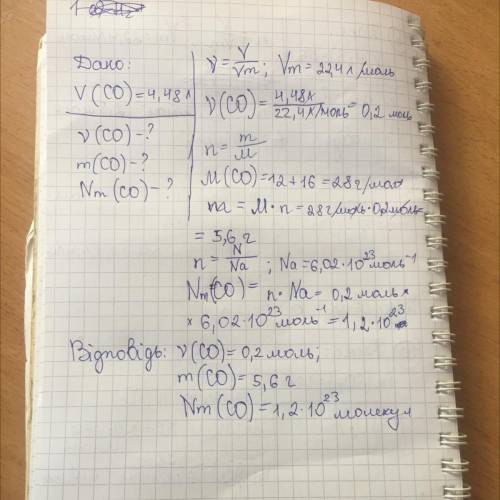 Дано:
V(CO)=4,48л
ν(CO)-?
m(CO)-?
Nm(CO)-?
ν=V/Vm; Vm=22,4 л/моль
ν(CO)=4,48л/22,4л/моль=0,2 моль
n=m/M
M(CO)=12+16=28г/мол
m=M·n=28г/моль·0,2моль=
=5,6г
n=N/Na; Na=6,02·10²³моль⁻¹
Nm(CO)=n·Na=0,2моль×
×6,02·10²³моль⁻¹=1,2·10²³
Відповідь: ν(CO)=0,2 моль;
m(CO)=5,6г
Nm(CO)=1,2·10²³молекул